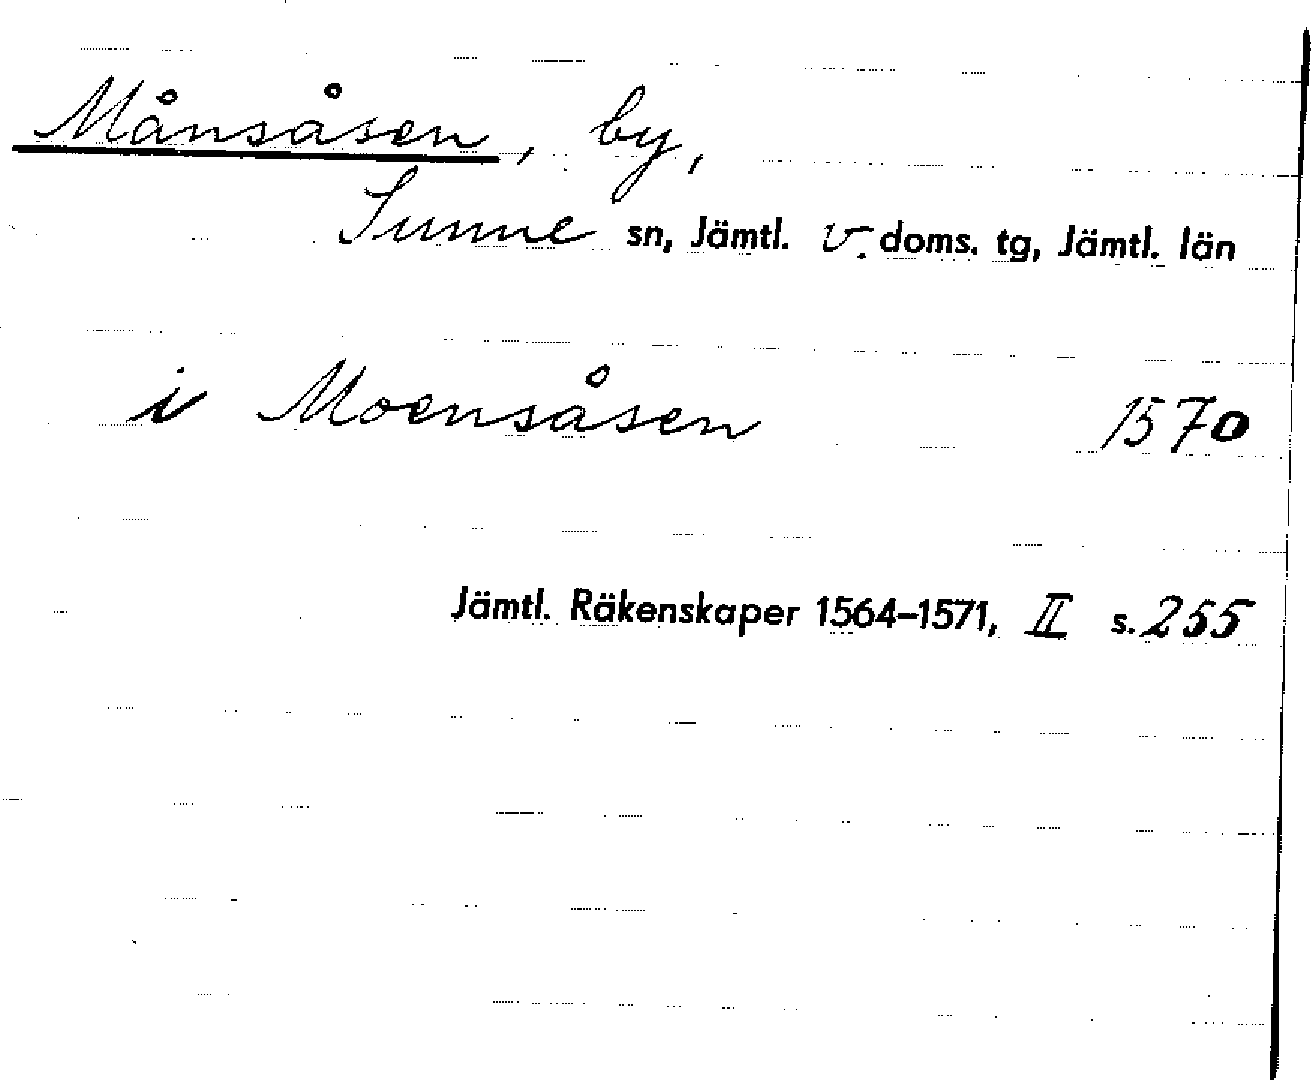 Månsåsen, by,
Sunne sn, Jämtl. v. doms. tg, Jämtl. län
i Moensåsen 1570
Jämtl. Räkenskaper 1564–1571, II s. 255